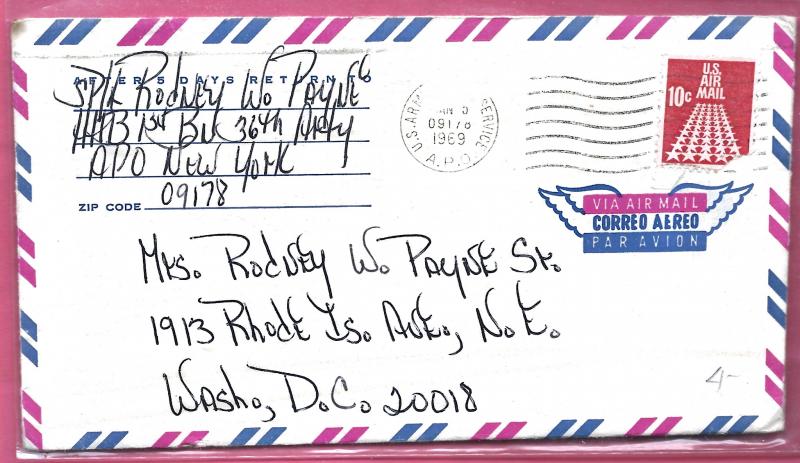 AFTER 5 DAYS RETURN TO
Rodney W. Payne
1st Bn 36th Arty
APO New York
09178
ZIP CODE
U.S. ARM SERVICE
09178
1969
A.P.O.
U.S.
AIR
MAIL
10c
VIA AIR MAIL
CORREO AEREO
PAR AVION
Mrs. Rodney W. Payne Sr.
1913 Rhode Is. Ave., N.E.
Wash., D.C. 20018
4-